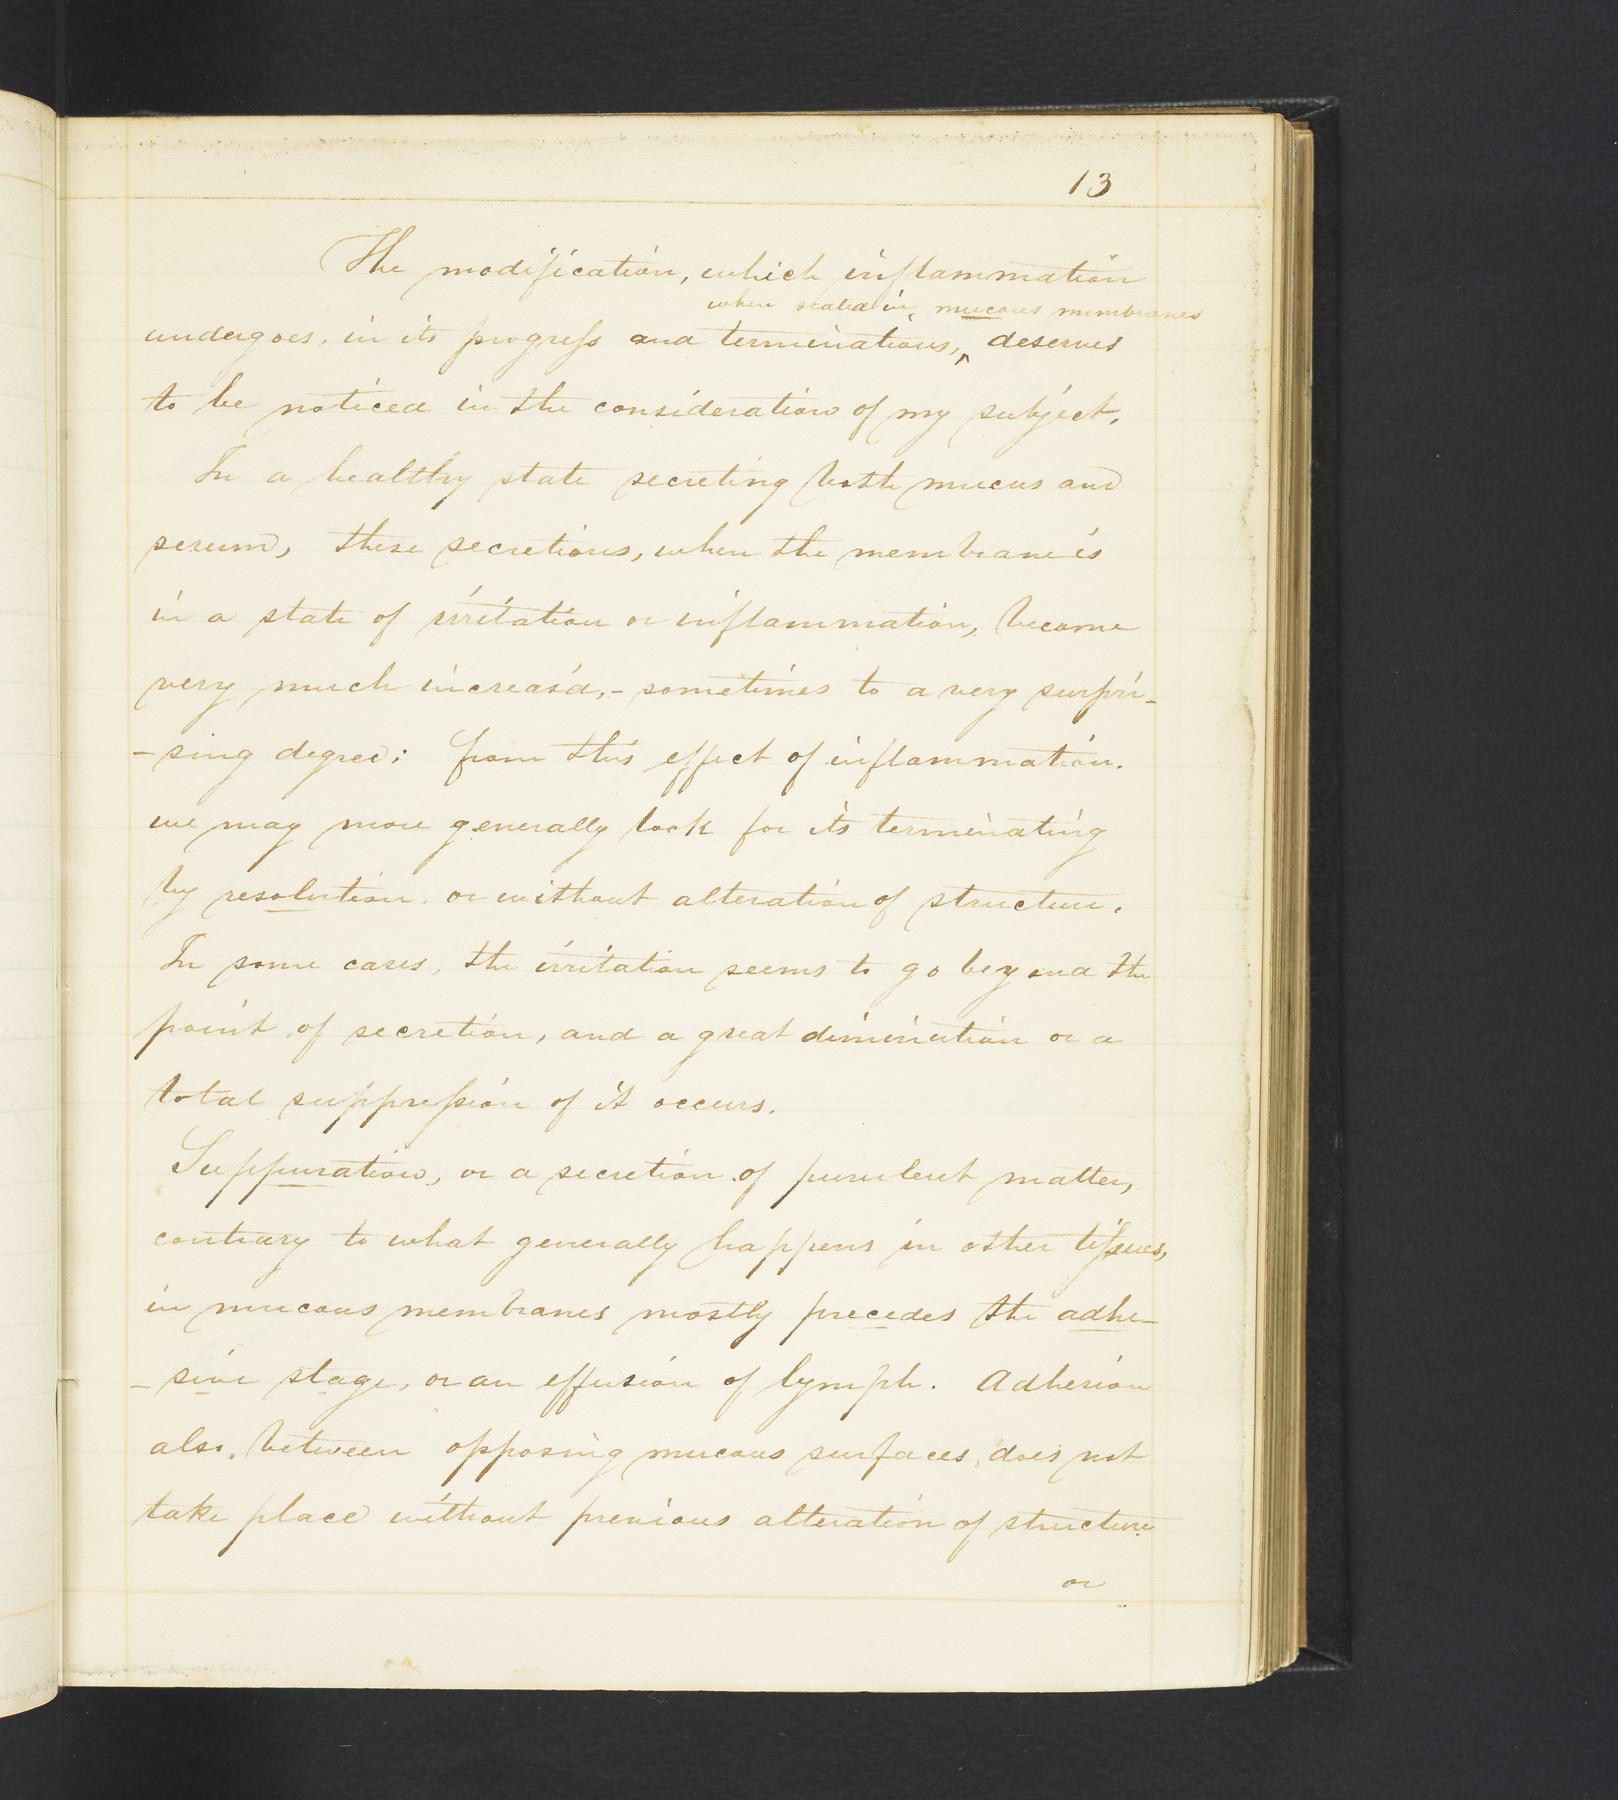 13
The modification, which inflammation
when seated in, mucous membranes
undergoes, in its progress and terminations,^ deserves
to be noticed in the consideration of my subject.
In a healthy state secreting both mucus and
serum, these secretions, when the membrane is
in a state of irritation or inflammation, become
very much increas'd, - sometimes to a very surpri-
-sing degree; from this effect of inflammation.
we may more generally look for its terminating
by resolution, or without alteration of structure.
In some cases, the irritation seems to go beyond the
point of secretion, and a great diminution or a
total suppression of it occurs.
Suppuration, or a secretion of purulent matter,
contrary to what generally happens in other tissues,
in mucous membranes mostly precedes the adhe-
-sive stage, or an effusion of lymph. Adhesion
also, between opposing mucous surfaces, does not
take place without previous alteration of structure
or